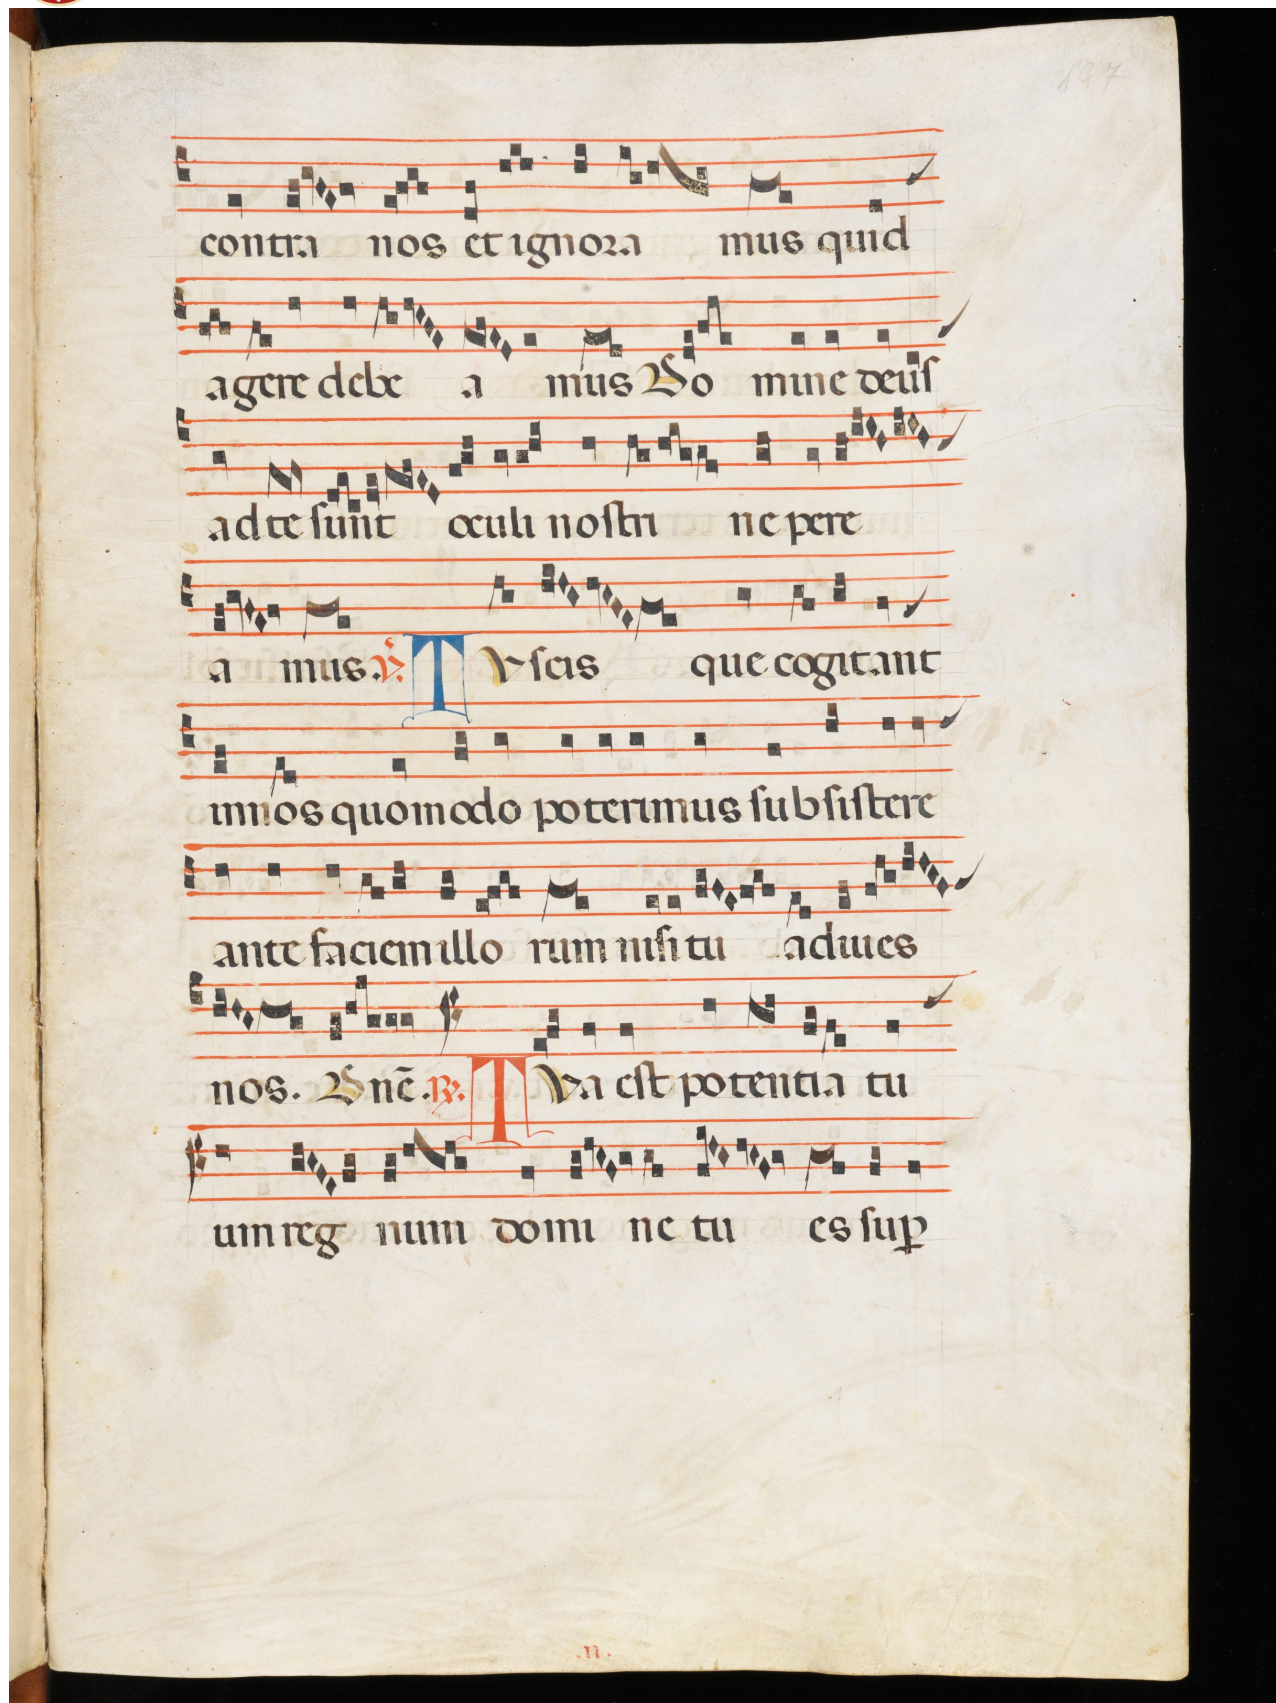 137
contra nos et ignora mus quid
agere debe a mus Do mine deus
ad te sunt oculi nostri ne pere
a mus. ℣. T V scis que cogitant
in nos quomodo poterimus subsistere
ante faciem illo rum nisi tu adiues
nos. Dnē. ℟. T Va est potentia tu
um reg num domi ne tu es suꝑ
.n.